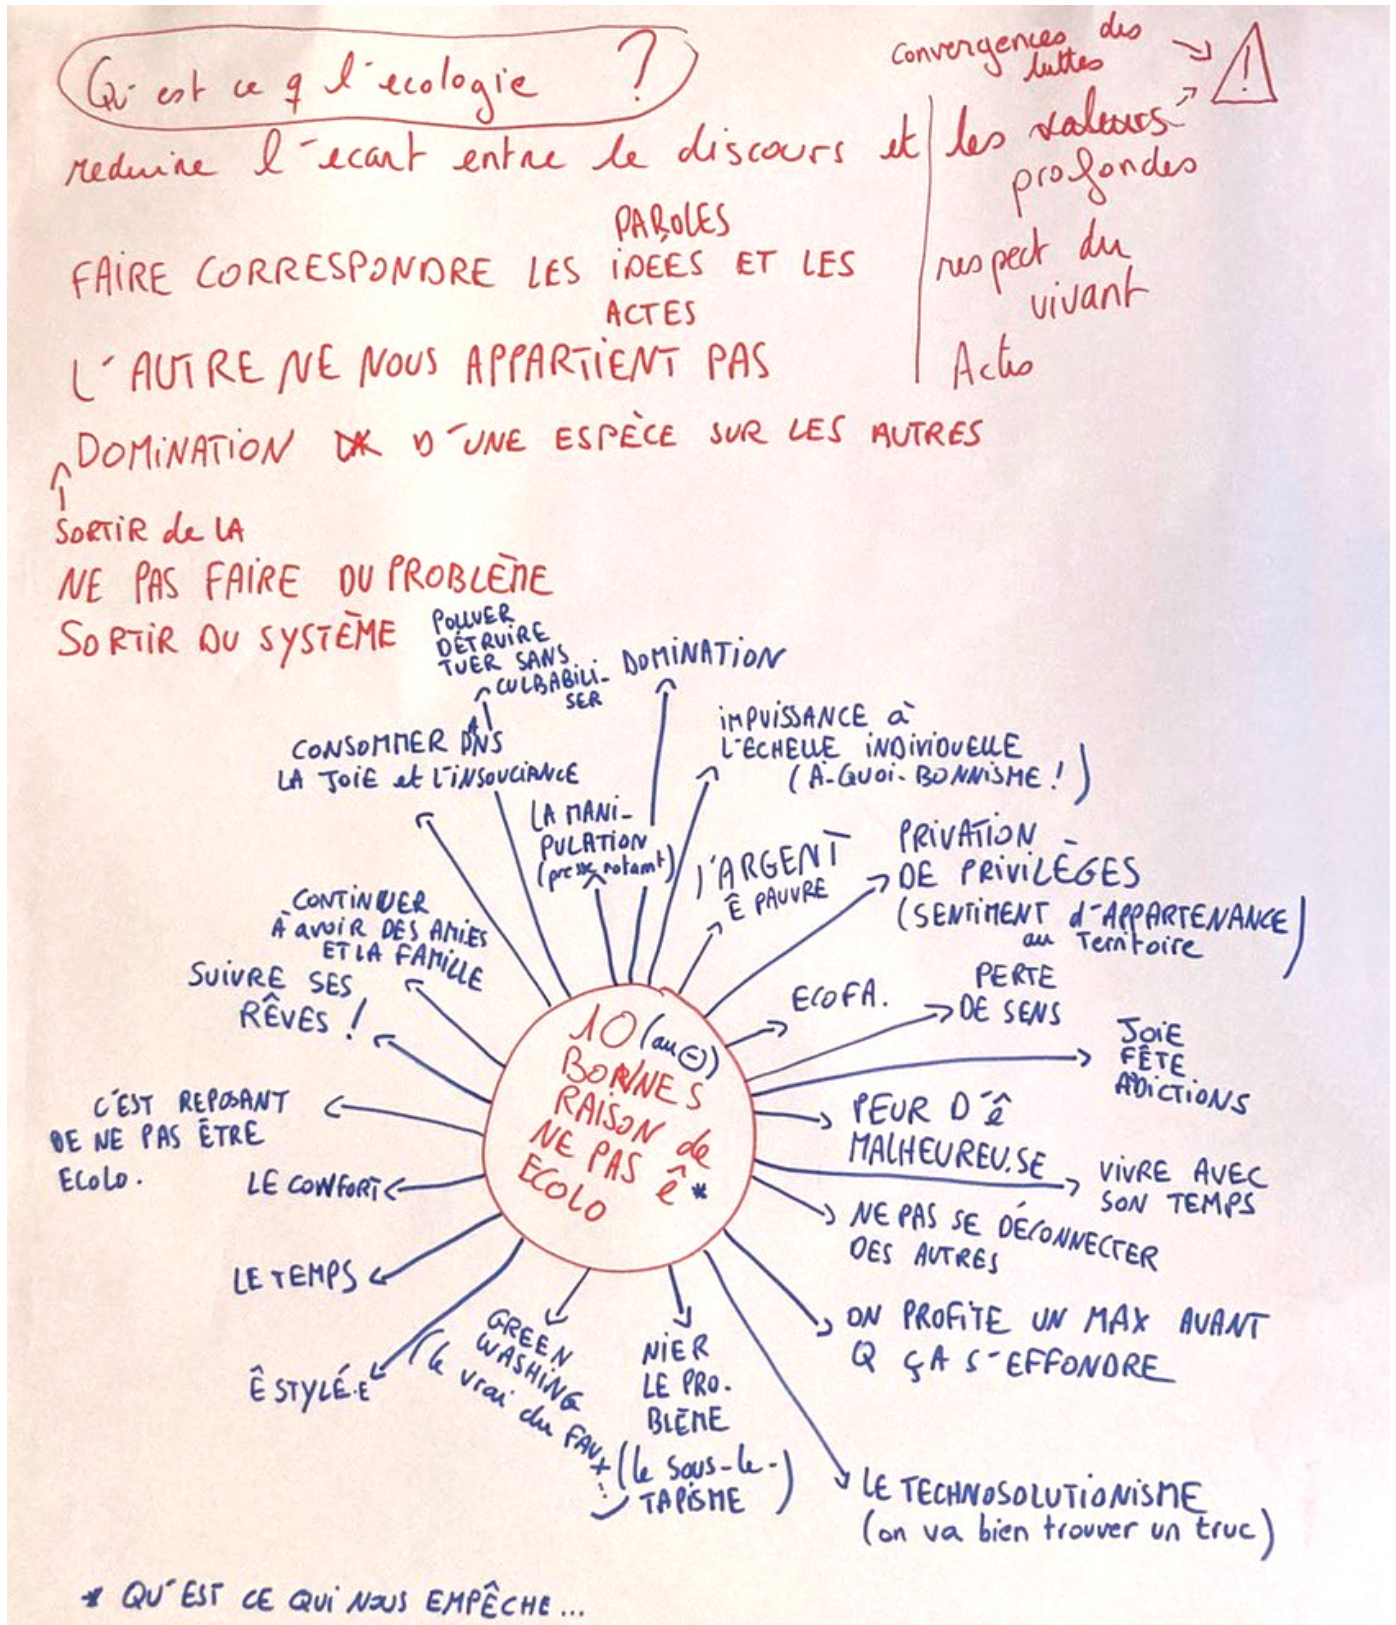 Qu'est ce q l'ecologie ?
Convergences des
luttes
!
reduire l'ecart entre le discours et les valeurs
profondes
respect du
vivant
Actes
PAROLES
FAIRE CORRESPONDRE LES iDEES ET LES
ACTES
L'AUTRE NE NOUS APPARTIENT PAS
DOMINATION D'UNE ESPÈCE SUR LES AUTRES
SORTIR de LA
NE PAS FAIRE DU PROBLÈME
SORTIR DU SYSTÈME
POLLUER
DÉTRUIRE
TUER SANS
CULBABILI-
SER
DOMINATION
CONSOMMER DANS
LA JOIE et L'INSOUCIANCE
IMPUISSANCE à
L'ECHELLE INDIVIDUELLE
(A-QUOI-BONNISME !)
LA MANI-
PULATION
(presse notamt)
l'ARGENT
Ê PAUVRE
PRIVATION
DE PRIVILÈGES
(SENTIMENT d'APPARTENANCE)
au Territoire
CONTINUER
À avoir DES AMIES
ET LA FAMILLE
SUIVRE SES
RÊVES !
ECOFA.
PERTE
DE SENS
JOIE
FÊTE
ADICTIONS
10 (au ⊖)
BONNES
RAISON de
NE PAS ê *
ECOLO
C'EST REPOSANT
DE NE PAS ÊTRE
ECOLO.
PEUR D'ê
MALHEUREU.SE
VIVRE AVEC
SON TEMPS
LE CONFORT
NE PAS SE DÉCONNECTER
DES AUTRES
LE TEMPS
ON PROFITE UN MAX AVANT
Q ÇA S'EFFONDRE
Ê STYLÉ.E
GREEN
WASHING
(le vrai du FAUX...)
NIER
LE PRO-
BLÈME
(le Sous-le-
TAPISME)
LE TECHNOSOLUTIONISME
(on va bien trouver un truc)
* QU'EST CE QUI NOUS EMPÊCHE...